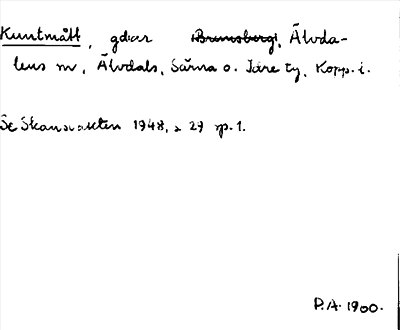 Kuntmått, gdar Brunsberg, Älvda-
lens sn, Älvdals, Särna o. Idre tg, Kopp. l.
Se Skansvakten 1948, s 29 sp. 1.
P.A. 1900.